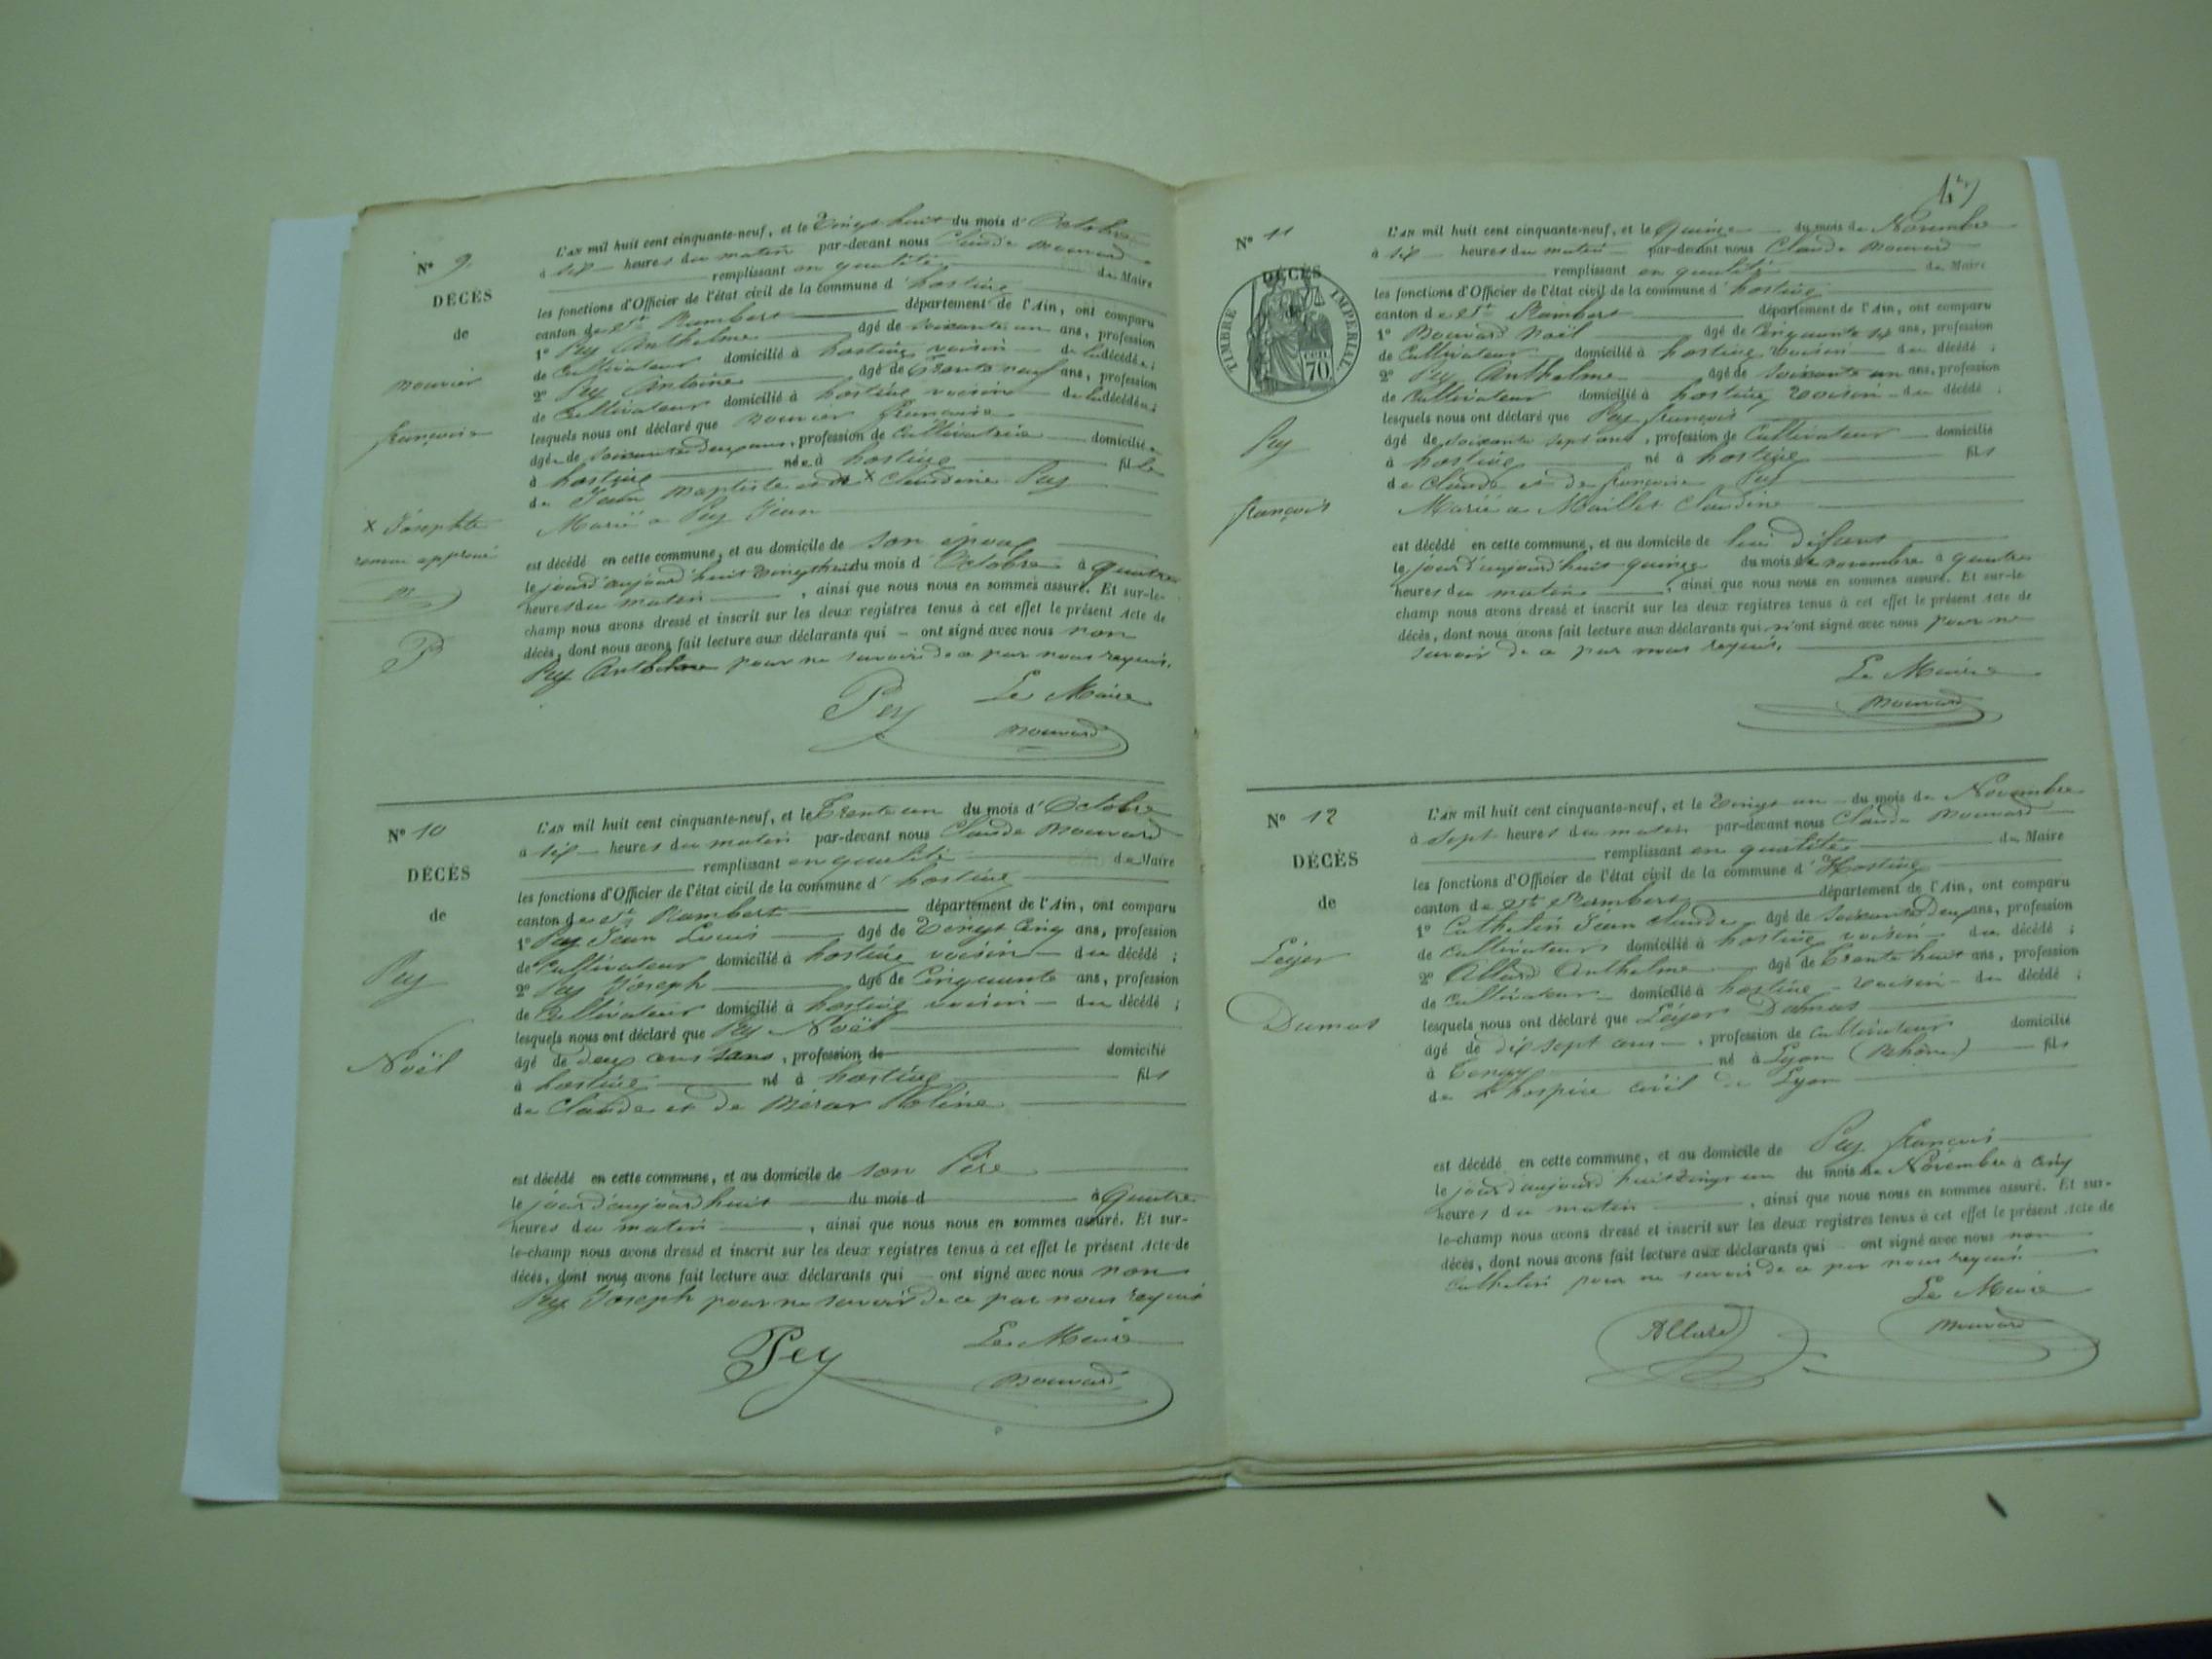 N° 9
DÉCÈS
de
Bouvier
françoise
X Josephte
renvoi approuvé
L'AN mil huit cent cinquante-neuf, et le Vingt huit du mois d'Octobre
à six heures du matin par-devant nous Claude Bouvard
remplissant en qualité de Maire
les fonctions d'Officier de l'état civil de la commune d'hostiaz
canton de St Rambert département de l'Ain, ont comparu
1° Pey Anthelme âgé de soixante un ans, profession
de Cultivateur domicilié à hostiaz voisin de la décédée;
2° Pey Antoine âgé de Trente neuf ans, profession
de Cultivateur domicilié à hostiaz voisin de la décédée;
lesquels nous ont déclaré que Bouvier françoise
âgée de soixante deux ans, profession de Cultivatrice domiciliée
à hostiaz née à hostiaz fille
de Jean Baptiste et de X Claudine Pey
Marié a Pey Jean
est décédé en cette commune, et au domicile de son époux
le jour d'aujourd'huit Vingt huit du mois d'Octobre à quatre
heures du matin, ainsi que nous nous en sommes assuré. Et sur-le-
champ nous avons dressé et inscrit sur les deux registres tenus à cet effet le présent Acte de
décès, dont nous avons fait lecture aux déclarants qui – ont signé avec nous non
Pey Anthelme pour ne savoir de ce par nous requis.
Le Maire
Pey
Bouvard
N° 10
DÉCÈS
de
Pey
Noël
L'AN mil huit cent cinquante-neuf, et le Trente un du mois d'Octobre
à six heures du matin par-devant nous Claude Bouvard
remplissant en qualité de Maire
les fonctions d'Officier de l'état civil de la commune d'hostiaz
canton de St Rambert département de l'Ain, ont comparu
1° Pey Jean Louis âgé de Vingt Cinq ans, profession
de Cultivateur domicilié à hostiaz voisin du décédé;
2° Pey Joseph âgé de Cinquante ans, profession
de Cultivateur domicilié à hostiaz voisin du décédé;
lesquels nous ont déclaré que Pey Noël
âgé de deux ans sans, profession de domicilié
à hostiaz né à hostiaz fils
de Claude et de
est décédé en cette commune, et au domicile de son Père
le jour d'aujourd'huit du mois d à Quatre
heures du matin, ainsi que nous nous en sommes assuré. Et sur-
le-champ nous avons dressé et inscrit sur les deux registres tenus à cet effet le présent Acte de
décès, dont nous avons fait lecture aux déclarants qui – ont signé avec nous non
Pey Joseph pour ne savoir de ce par nous requis
Le Maire
Pey
Bouvard
N° 11
DÉCÈS
de
TIMBRE IMPERIAL
CEN. 70
Pey
françois
L'AN mil huit cent cinquante-neuf, et le Quinze du mois de Novembre
à six heures du matin par-devant nous Claude Bouvard
remplissant en qualité de Maire
les fonctions d'Officier de l'état civil de la commune d'hostiaz
canton de St Rambert département de l'Ain, ont comparu
1° Bouvard Noël âgé de Cinquante six ans, profession
de Cultivateur domicilié à hostiaz Voisin du décédé;
2° Pey Anthelme âgé de soixante un ans, profession
de Cultivateur domicilié à hostiaz Voisin du décédé;
lesquels nous ont déclaré que Pey françois
âgé de soixante sept ans, profession de Cultivateur domicilié
à hostiaz né à hostiaz fils
de Claude et de françoise Pey
Marié a Maillet Claudine
est décédé en cette commune, et au domicile de lui défunt
le jour d'aujourd'huit quinze du mois de novembre à quatre
heures du matin, ainsi que nous nous en sommes assuré. Et sur-le-
champ nous avons dressé et inscrit sur les deux registres tenus à cet effet le présent Acte de
décès, dont nous avons fait lecture aux déclarants qui n'ont signé avec nous pour ne
savoir de ce par nous requis.
Le Maire
Bouvard
N° 12
DÉCÈS
de
Léger
Dumas
L'AN mil huit cent cinquante-neuf, et le Vingt un du mois de Novembre
à sept heures du matin par-devant nous Claude Bouvard
remplissant en qualité de Maire
les fonctions d'Officier de l'état civil de la commune d'Hostiaz
canton de St Rambert département de l'Ain, ont comparu
1° Cathelin Jean Claude âgé de soixante Deux ans, profession
de cultivateur domicilié à hostiaz voisin du décédé;
2° Allard Anthelme âgé de Trente huit ans, profession
de cultivateur domicilié à hostiaz – voisin – du décédé;
lesquels nous ont déclaré que Léger Dumas
âgé de dix sept ans, profession de cultivateur domicilié
à Tenay né à Lyon (Rhône) fils
de L'hospice civil de Lyon
est décédé en cette commune, et au domicile de Pey françois
le jour d'aujourd'huit Vingt un du mois de Novembre à cinq
heures du matin, ainsi que nous nous en sommes assuré. Et sur-
le-champ nous avons dressé et inscrit sur les deux registres tenus à cet effet le présent Acte de
décès, dont nous avons fait lecture aux déclarants qui – ont signé avec nous non
Cathelin pour ne savoir de ce par nous requis
Le Maire
Allard
Bouvard